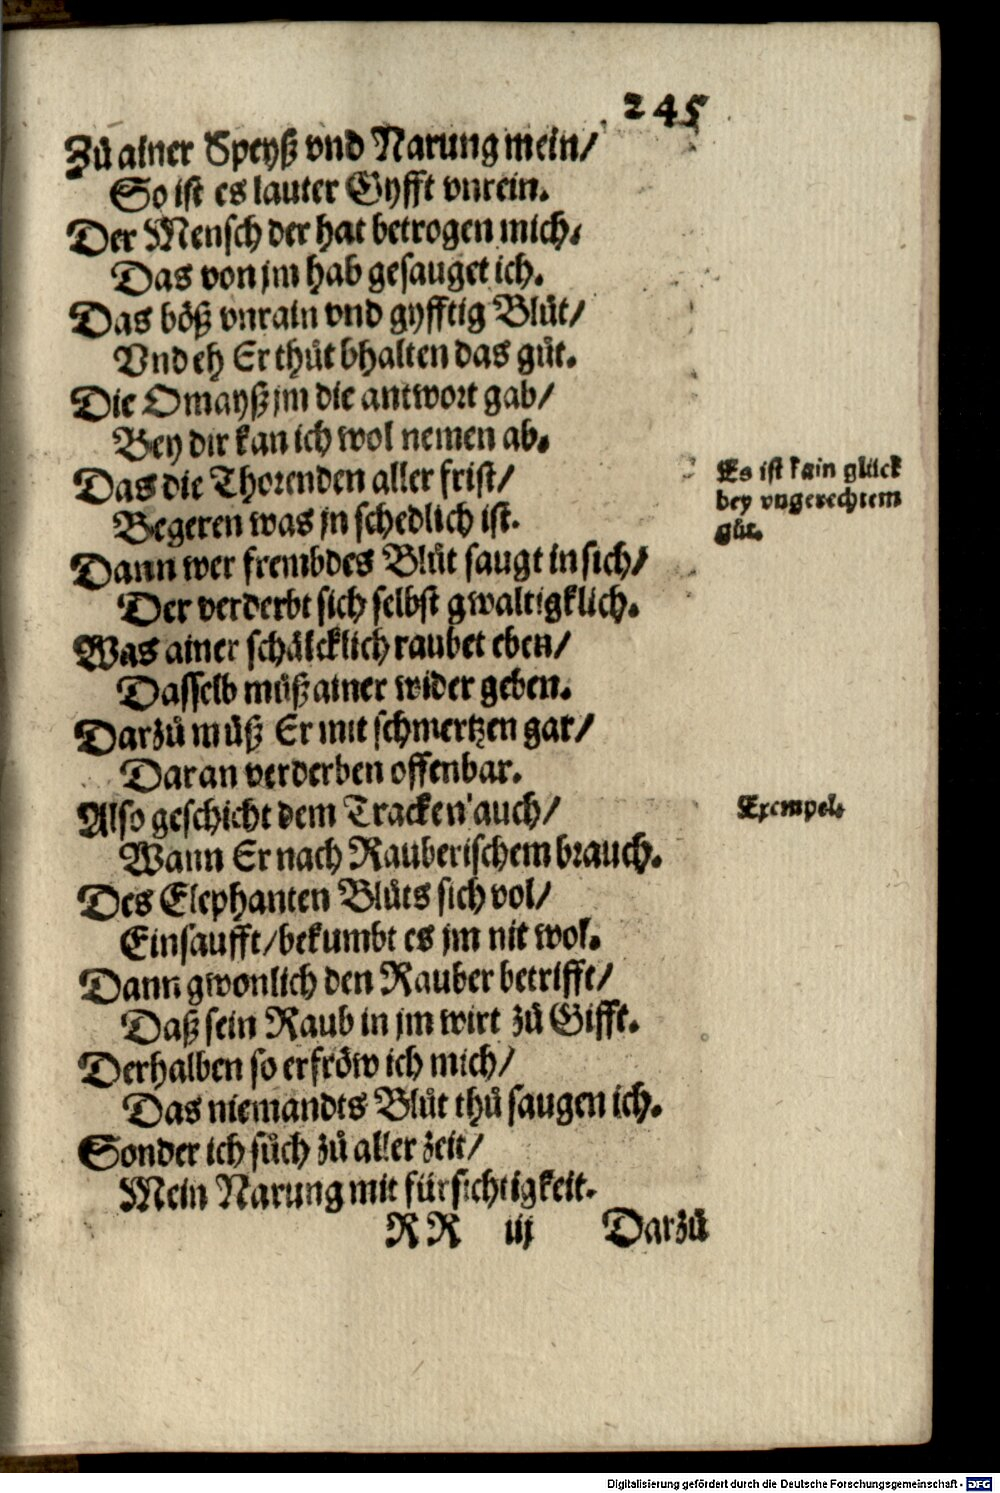 245
Zů ainer Speyß vnd Narung mein/
So ist es lauter Gyfft vnrein.
Der Mensch der hat betrogen mich/
Das von jm hab gesauget ich.
Das böß vnrain vnd gyfftig Blůt/
Vnd eh Er thůt bhalten das gůt.
Die Omayß jm die antwort gab/
Bey dir kan ich wol nemen ab.
Das die Thorenden aller frist/
Begeren was jn schedlich ist.
Es ist kain glück
bey vngerechtem
gůt.
Dann wer frembdes Blůt saugt in sich/
Der verderbt sich selbst gwaltigklich.
Was ainer schälcklich raubet eben/
Dasselb můß ainer wider geben.
Darzů můß Er mit schmertzen gar/
Daran verderben offenbar.
Also geschicht dem Tracken auch/
Exempel.
Wann Er nach Rauberischem brauch.
Des Elephanten Blůts sich vol/
Einsaufft/bekumbt es jm nit wol.
Dann gwonlich den Rauber betrifft/
Daß sein Raub in jm wirt zů Gifft.
Derhalben so erfröw ich mich/
Das niemandts Blůt thů saugen ich.
Sonder ich sůch zů aller zeit/
Mein Narung mit fürsichtigkeit.
RR iij Darzů
Digitalisierung gefördert durch die Deutsche Forschungsgemeinschaft - DFG